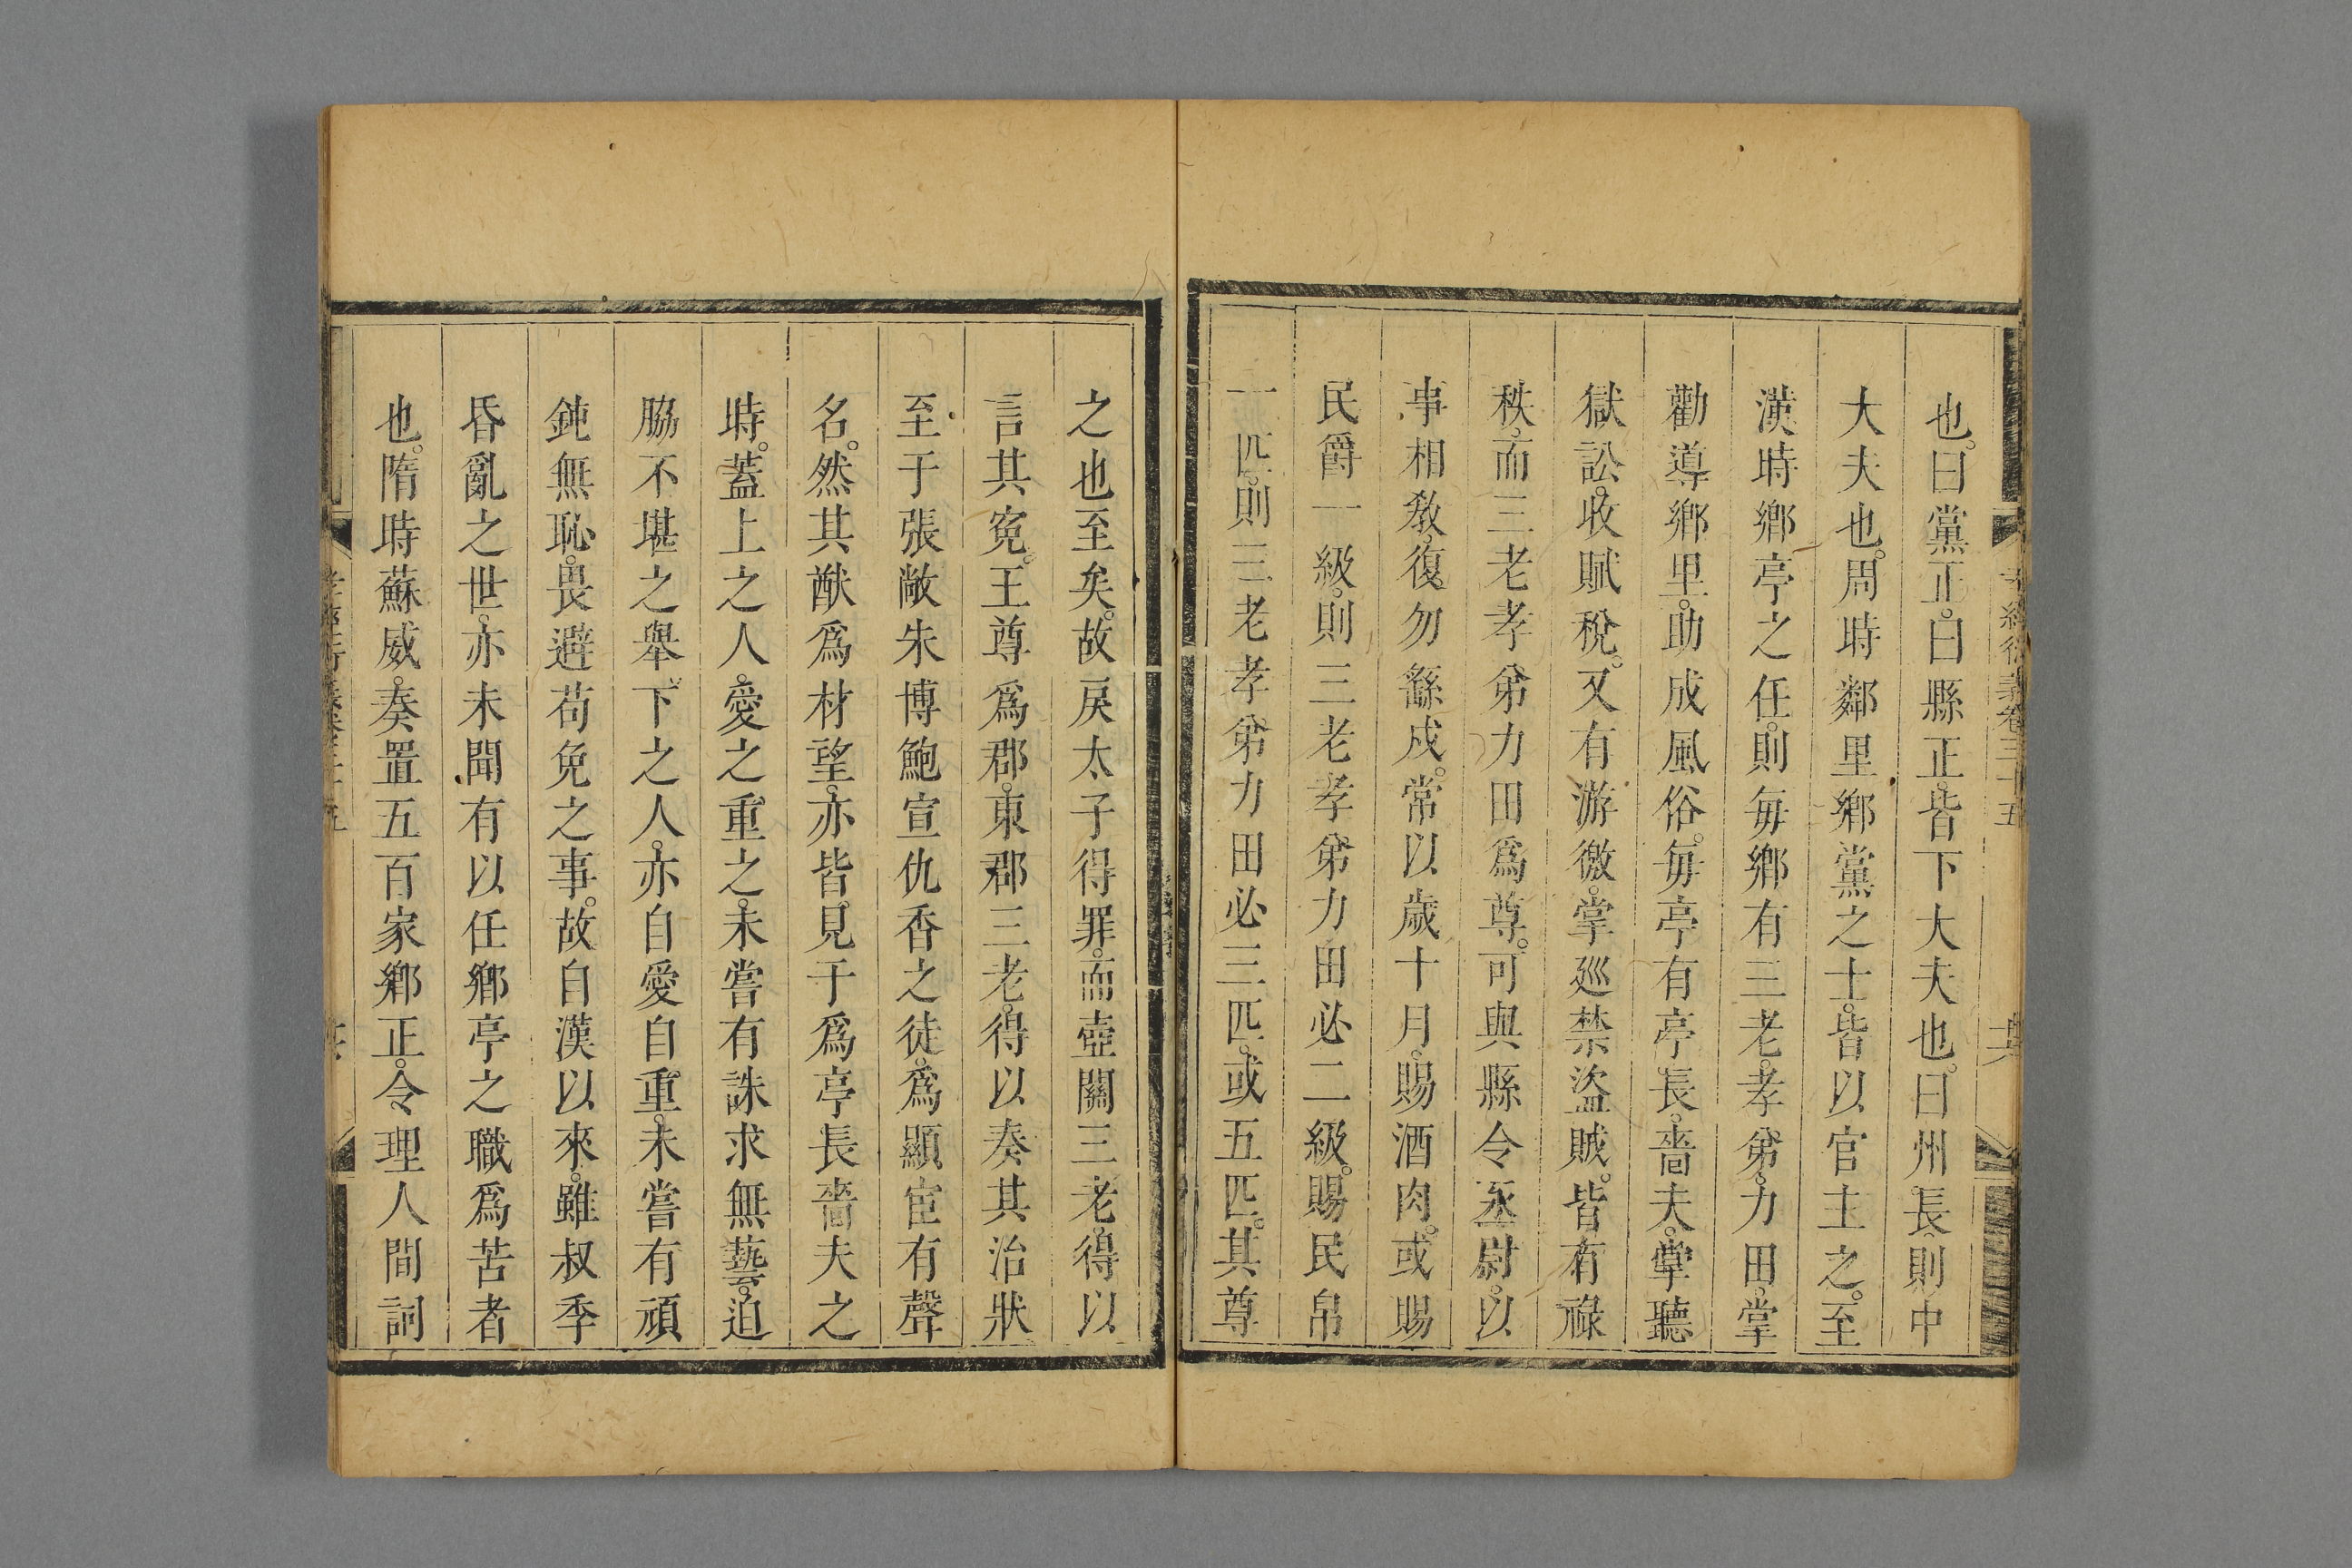 也。曰黨正。曰縣正。皆下大夫也。曰州長。則中
大夫也。周時鄰里鄉黨之士。皆以官主之。至
漢時鄉亭之任。則每鄉有三老。孝弟。力田。掌
勸導鄉里。助成風俗。每亭有亭長。嗇夫。掌聽
獄訟。收賦稅。又有游徼。掌廵禁盜賊。皆有祿
秩。而三老孝弟力田爲尊。可與縣令丞尉。以
事相教。復勿繇戍。常以歲十月。賜酒肉。或賜
民爵一級。則三老孝弟力田必二級。賜民帛
一匹。則三老孝弟力田必三匹。或五匹。其尊
之也至矣。故戾太子得罪。而壺關三老。得以
言其寃。王尊爲郡。東郡三老。得以奏其治狀
至于張敞朱博鮑宣仇香之徒。爲顯宦有聲
名。然其猷爲材望。亦皆見于爲亭長嗇夫之
時。蓋上之人。愛之重之。未嘗有誅求無藝。迫
脇不堪之舉。下之人。亦自愛自重。未嘗有頑
鈍無恥。畏避苟免之事。故自漢以來。雖叔季
昏亂之世。亦未聞有以任鄉亭之職爲苦者
也。隋時蘇威。奏置五百家鄉正。令理人間詞